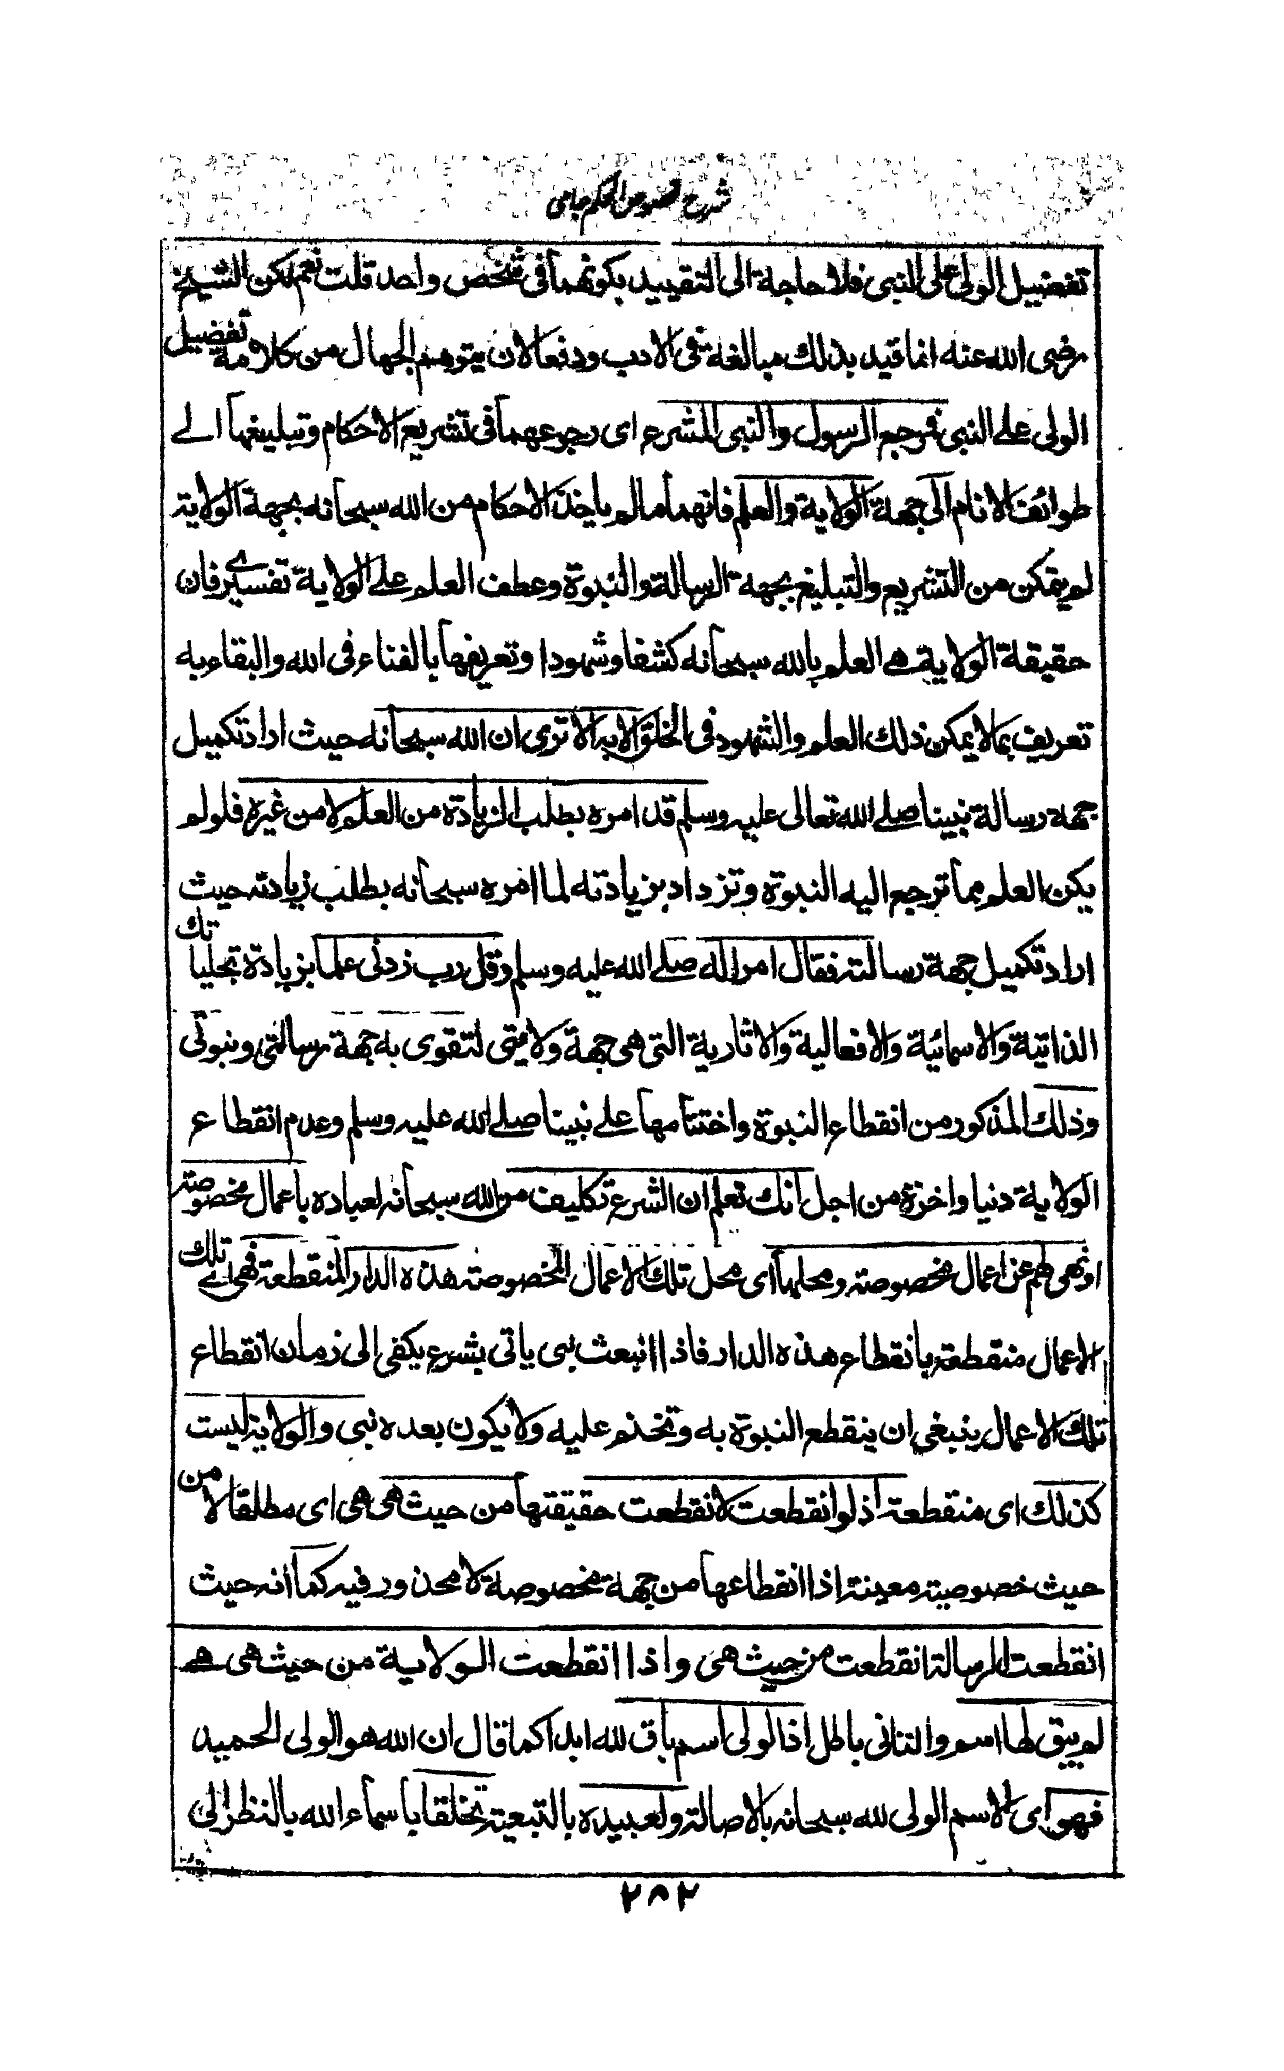 شرح فصوص الحكم جامی
تفضيل الولى على النبى فلا حاجة الى التقييد بكونهما فى شخص واحد قلت نعم لكن الشيخ
رضى الله عنه انما قيد بذلك مبالغة فى الادب ودفعا لان يتوهم الجهال من كلامه تفضيل
الولى على النبى فمرجع الرسول والنبى المشرع اى رجوعهما فى تشريع الاحكام وتبليغها الى
طوائف الانام الى جهة الولاية والعلم فانهما مالم ياخذا الاحكام من الله سبحانه بجهة الولاية
لم يتمكن من التشريع والتبليغ بجهة الرسالة والنبوة وعطف العلم على الولاية تفسيرى فان
حقيقة الولاية هى العلم بالله سبحانه كشفا وشهودا وتعريفها بالفناء فى الله والبقاء به
تعريف بما لا يمكن ذلك العلم والشهود فى الخلق الا به الا ترى ان الله سبحانه حيث اراد تكميل
جهة رسالة نبينا صلى الله تعالى عليه وسلم قد امره بطلب الزيادة من العلم لا من غيره فلو لم
يكن العلم مما ترجع اليه النبوة وتزداد بزيادته لما امره سبحانه بطلب زيادته حيث
اراد تكميل جهة رسالته فقال امرا له صلى الله عليه وسلم وقل رب زدنى علما بزيادة تجلياتك
الذاتية والاسمائية والافعالية والاثارية التى هى جهة ولايتى لتقوى به جهة رسالتى ونبوتى
وذلك المذكور من انقطاع النبوة واختتامها على نبينا صلى الله عليه وسلم وعدم انقطاع
الولاية دنيا واخرة من اجل انك تعلم ان الشرع تكليف من الله سبحانه لعباده باعمال مخصوصة
او نهى لهم عن اعمال مخصوصة ومحلها اى محل تلك الاعمال المخصوصة هذه الدار المنقطعة فهى اى تلك
الاعمال منقطعة بانقطاع هذه الدار فاذا انبعث نبى ياتى بشرع يكفى الى زمان انقطاع
تلك الاعمال ينبغى ان ينقطع النبوة به وتختم عليه ولا يكون بعده نبى والولاية ليست
كذلك اى منقطعة اذ لو انقطعت لانقطعت حقيقتها من حيث هى هى اى مطلقا لا من
حيث خصوصية معينة اذا انقطاعها من جهة مخصوصة لا محذور فيه كما انه حيث
انقطعت الرسالة انقطعت من حيث هى واذا انقطعت الولاية من حيث هى هى
لم يبق لها اسم والتانى باطل اذ الولى اسم باق لله ابدا كما قال ان الله هو الولى الحميد
فهو اى الاسم الولى لله سبحانه بالاصالة ولعبيده بالتبعية تخلقا باسماء الله بالنظر الى
٢٨٢